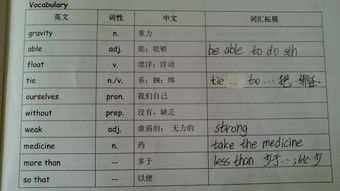 Vocabulary
英文 词性 中文 词汇拓展
gravity n. 重力
able adj. 能；能够 be able to do sth
float v. 漂浮；浮动
tie n./v. 系；捆；绑 tie … to … 把
ourselves pron. 我们自己
without prep. 没有，缺乏
weak adj. 虚弱的；无力的 strong
medicine n. 药 take the medicine
more than -- 多于 less than 少于…；比…少
so that -- 以便